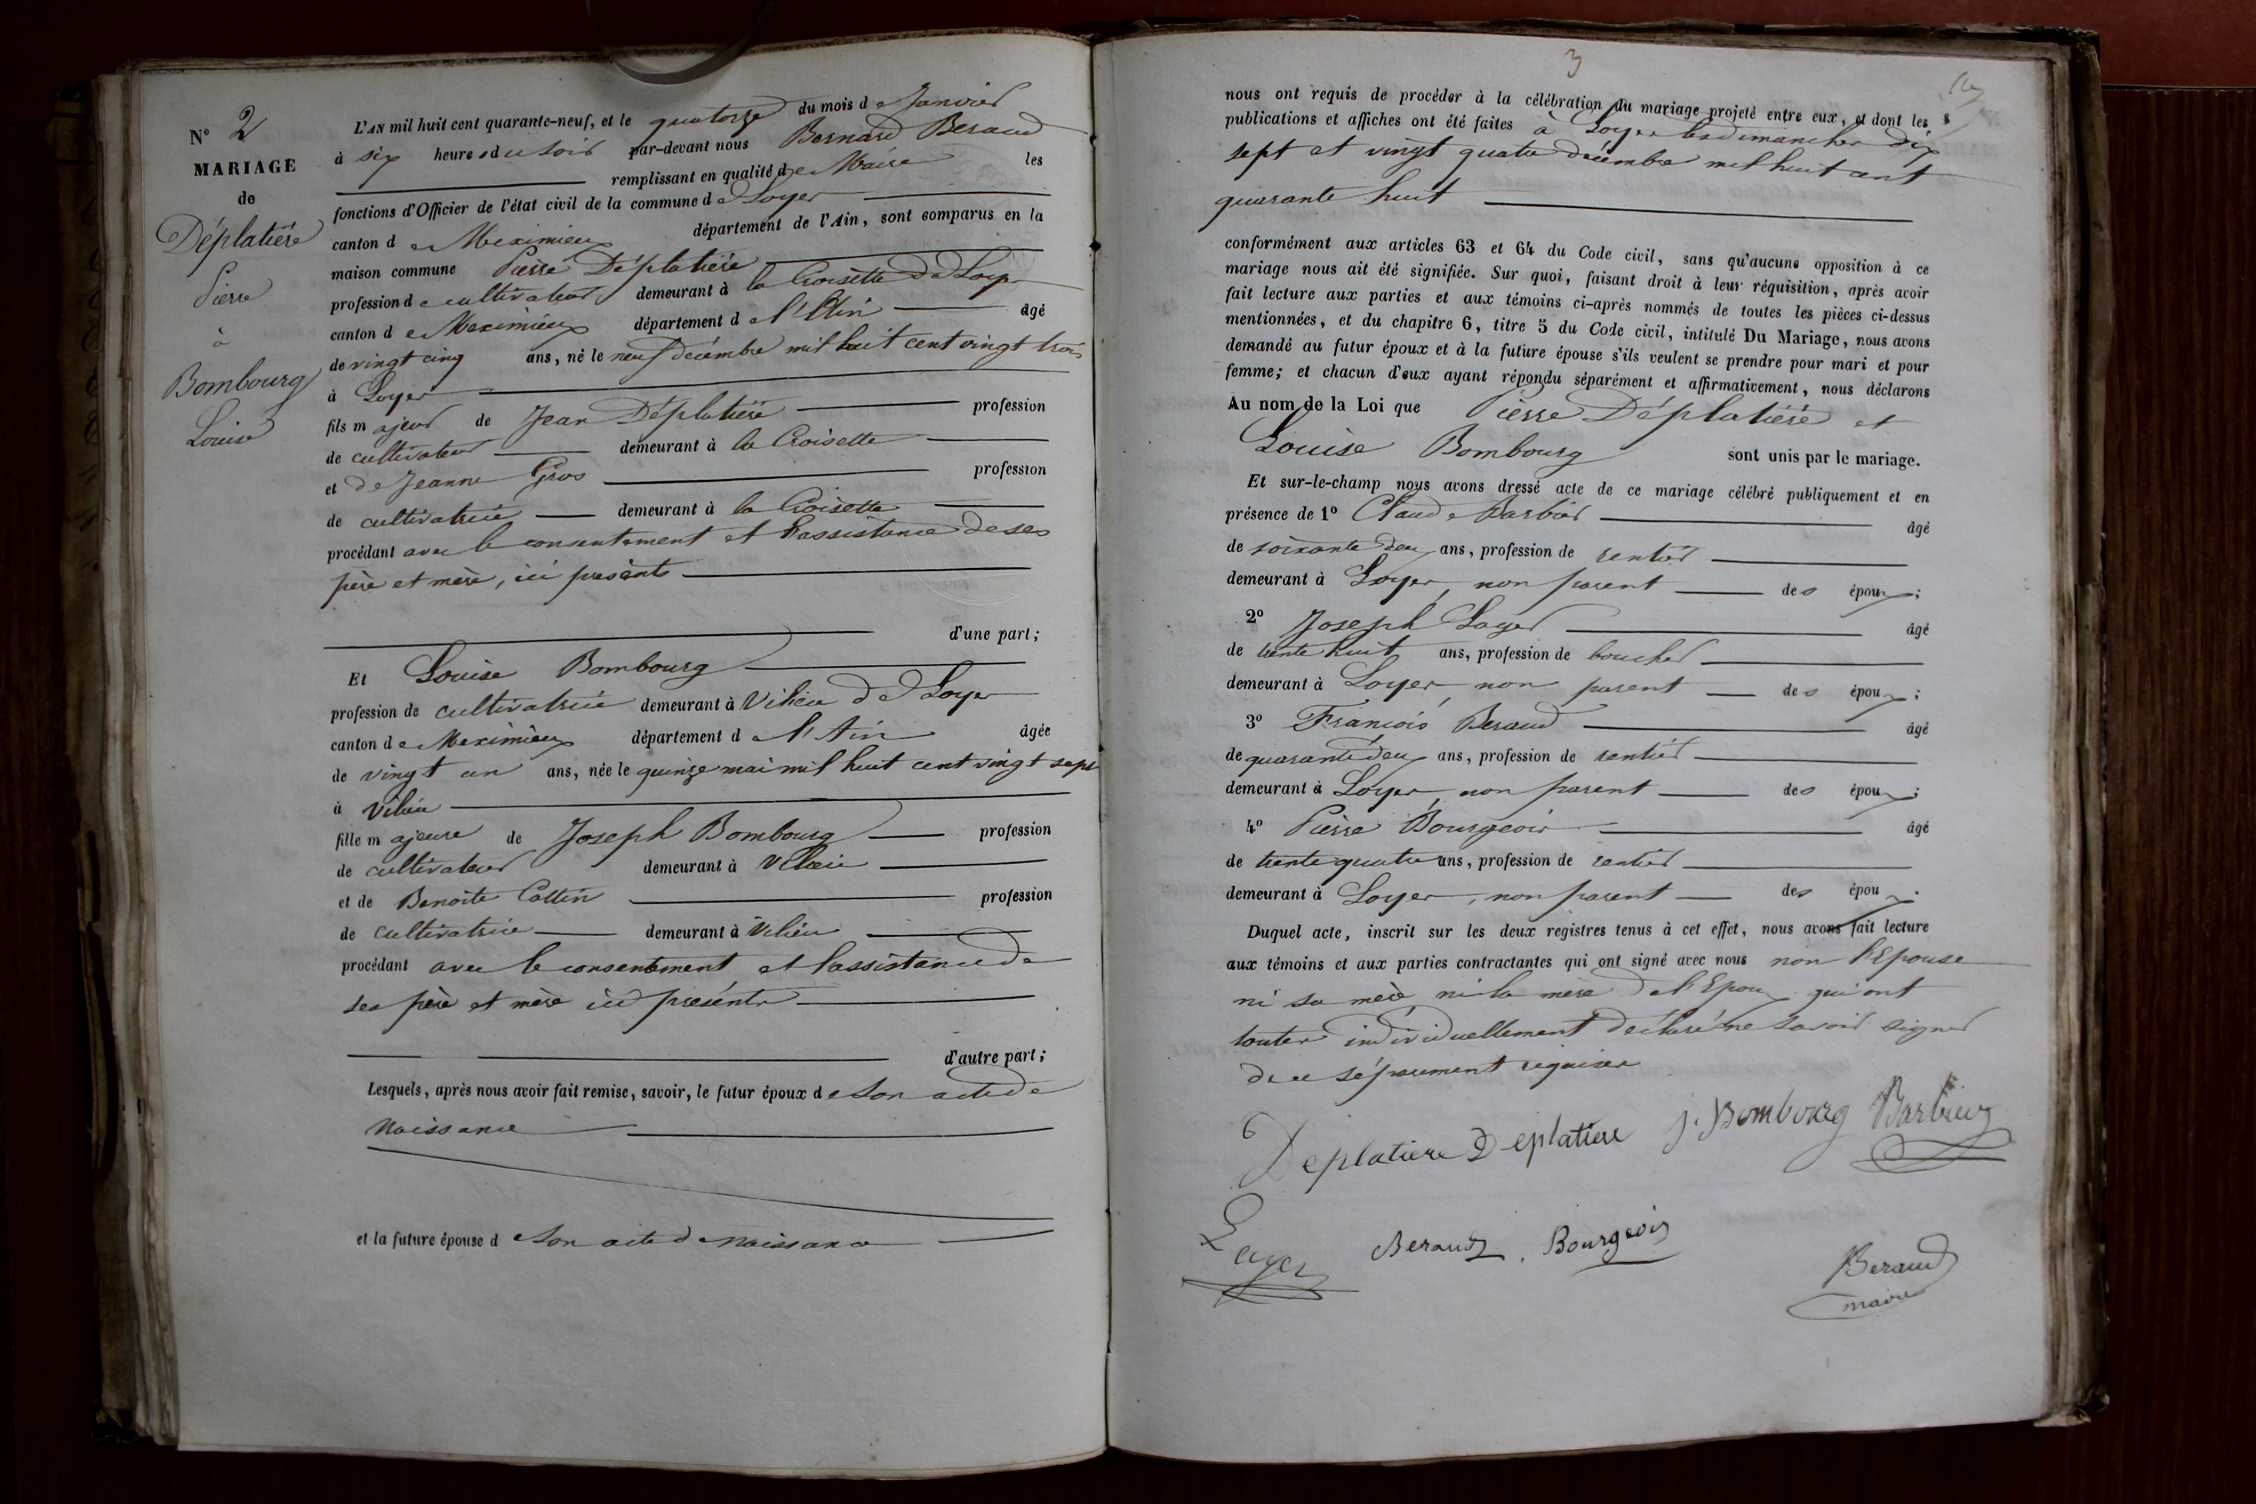 N° 2
MARIAGE
de
Déplatière
Pierre
à
Bombourg
Louise
L'AN mil huit cent quarante-neuf, et le quatorze du mois de Janvier
à six heures du soir par-devant nous Bernard Beraud
remplissant en qualité de Maire les
fonctions d'Officier de l'état civil de la commune de Loyer
canton de Meximieux département de l'Ain, sont comparus en la
maison commune Pierre Déplatière
profession de cultivateur demeurant à la Croisette de Loyer
canton de Meximieux département de l'Ain âgé
de vingt cinq ans, né le neuf décembre mil huit cent vingt trois
à Loyer
fils majeur de Jean Déplatière profession
de cultivateur demeurant à la Croisette
et de Jeanne Gros profession
de cultivatrice demeurant à la Croisette
procédant avec le consentement et l'assistance de ses
père et mère, ici présents
d'une part;
Et Louise Bombourg
profession de cultivatrice demeurant à Vilieu de Loyer
canton de Meximieux département de l'Ain âgée
de vingt un ans, née le quinze mai mil huit cent vingt sept
à Vilieu
fille majeure de Joseph Bombourg profession
de cultivateur demeurant à Vilieu
et de Benoite Cottin profession
de cultivatrice demeurant à Vilieu
procédant avec le consentement et l'assistance de
ses père et mère ici présents
d'autre part;
Lesquels, après nous avoir fait remise, savoir, le futur époux de son acte de
Naissance
et la future épouse de son acte de naissance
3
nous ont requis de procéder à la célébration du mariage projeté entre eux, et dont les
publications et affiches ont été faites à Loyer les dimanches dix
sept et vingt quatre décembre mil huit cent
quarante huit
conformément aux articles 63 et 64 du Code civil, sans qu'aucune opposition à ce
mariage nous ait été signifiée. Sur quoi, faisant droit à leur réquisition, après avoir
fait lecture aux parties et aux témoins ci-après nommés de toutes les pièces ci-dessus
mentionnées, et du chapitre 6, titre 5 du Code civil, intitulé Du Mariage, nous avons
demandé au futur époux et à la future épouse s'ils veulent se prendre pour mari et pour
femme; et chacun d'eux ayant répondu séparément et affirmativement, nous déclarons
Au nom de la Loi que Pierre Déplatière et
Louise Bombourg sont unis par le mariage.
Et sur-le-champ nous avons dressé acte de ce mariage célébré publiquement et en
présence de 1° Claude Barbier âgé
de soixante deux ans, profession de rentier
demeurant à Loyer, non parent des époux;
2° Joseph Layer âgé
de trente huit ans, profession de boucher
demeurant à Loyer, non parent des époux;
3° François Beraud âgé
de quarante deux ans, profession de rentier
demeurant à Loyer, non parent des époux;
4° Pierre Bourgeois âgé
de trente quatre ans, profession de rentier
demeurant à Loyer, non parent des époux.
Duquel acte, inscrit sur les deux registres tenus à cet effet, nous avons fait lecture
aux témoins et aux parties contractantes qui ont signé avec nous non l'Epouse
ni sa mère ni la mère de l'Epoux qui ont
toutes individuellement déclaré ne savoir signer
de ce séparément requises
Deplatiere Deplatiere J. Bombourg Barbier
Layer Beraud Bourgeois
Beraud
maire